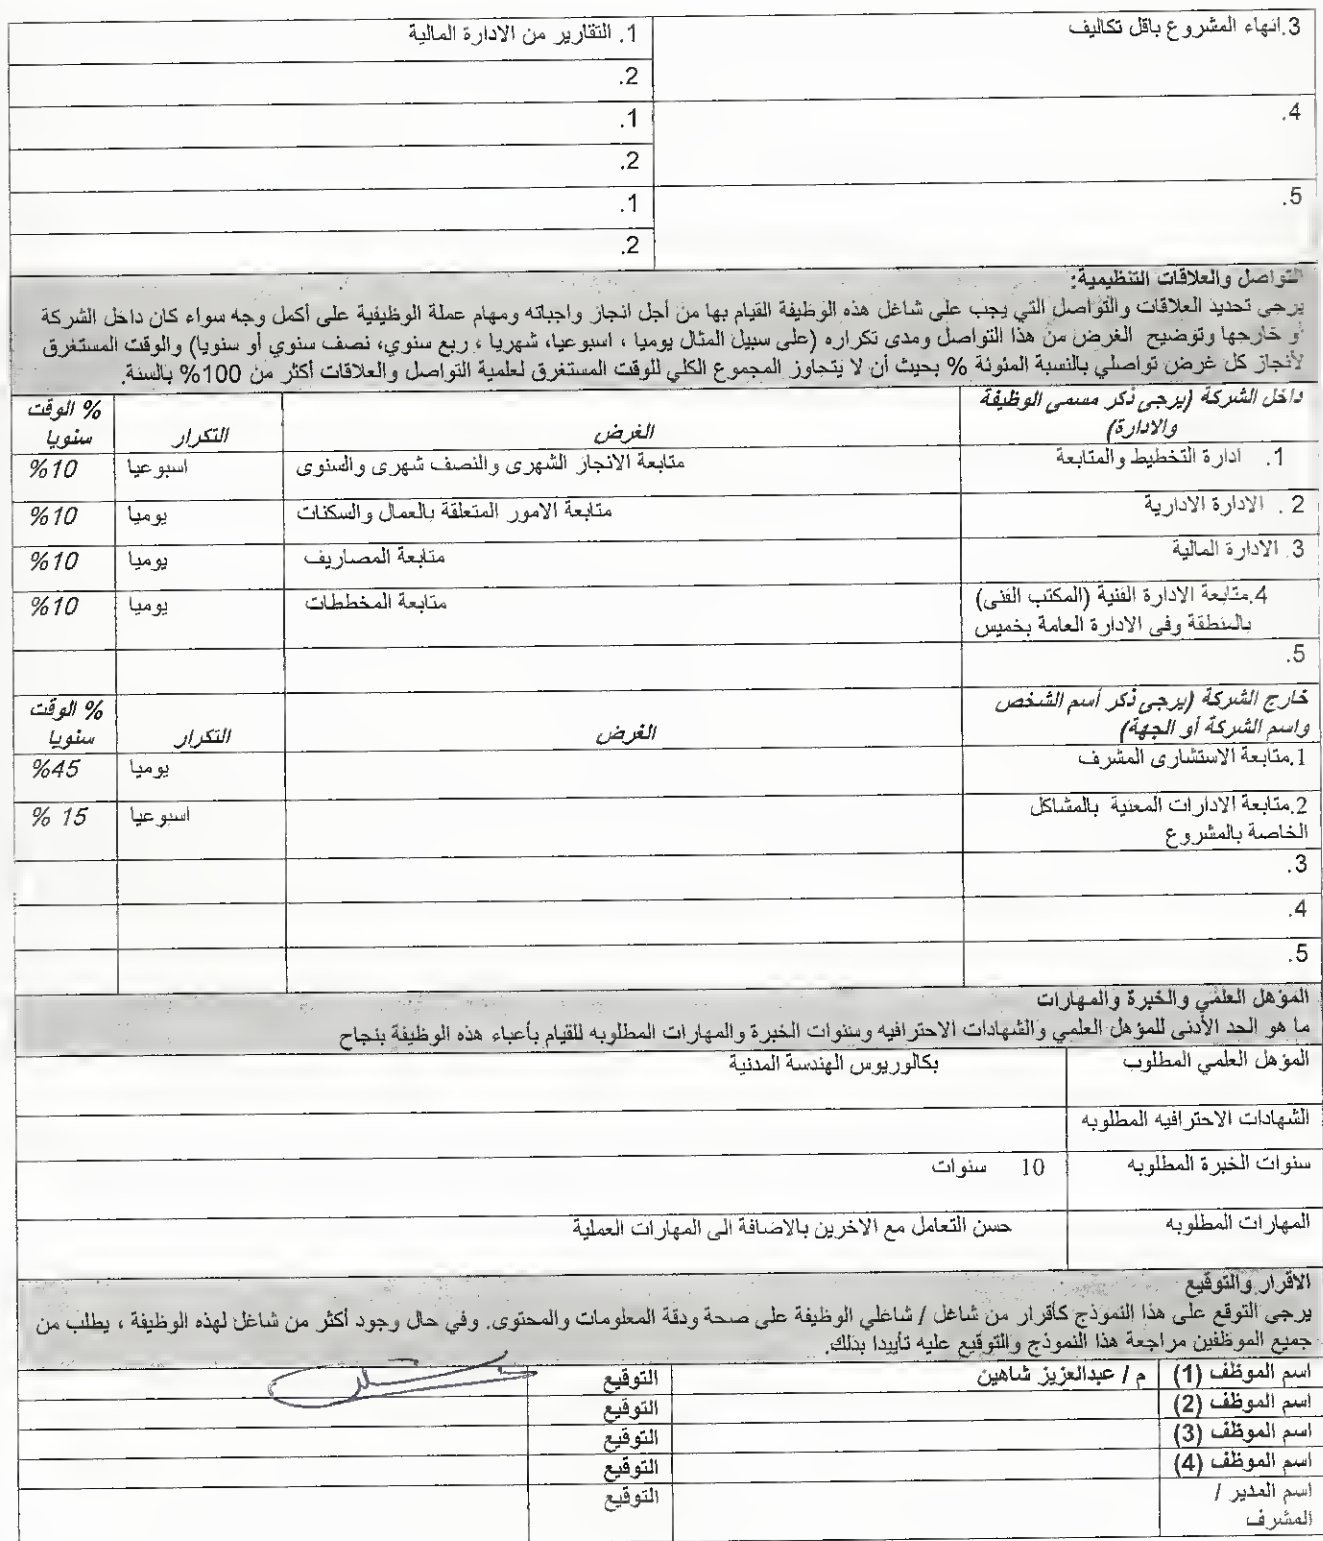 3.انهاء المشروع باقل تكاليف
1. التقارير من الادارة المالية
2.
4.
1.
2.
5.
1.
2.
التواصل والعلاقات التنظيمية:
يرجى تحديد العلاقات والتواصل التي يجب على شاغل هذه الوظيفة القيام بها من أجل انجاز واجباته ومهام عملة الوظيفية على أكمل وجه سواء كان داخل الشركة
أو خارجها وتوضيح الغرض من هذا التواصل ومدى تكراره (على سبيل المثال يوميا ، اسبوعيا، شهريا ، ربع سنوي، نصف سنوي أو سنويا) والوقت المستغرق
لأنجاز كل غرض تواصلي بالنسبة المئوئة % بحيث أن لا يتجاوز المجموع الكلي للوقت المستغرق لعلمية التواصل والعلاقات أكثر من 100% بالسنة.
داخل الشركة (يرجى ذكر مسمى الوظيفة
والادارة)
الغرض
التكرار
% الوقت
سنويا
1. ادارة التخطيط والمتابعة
متابعة الانجاز الشهرى والنصف شهرى والسنوى
اسبوعيا
%10
2 . الادارة الادارية
متابعة الامور المتعلقة بالعمال والسكنات
يوميا
%10
3. الادارة المالية
متابعة المصاريف
يوميا
%10
4.متابعة الادارة الفنية (المكتب الفنى)
بالمنطقة وفى الادارة العامة بخميس
متابعة المخططات
يوميا
%10
5.
خارج الشركة (يرجى ذكر أسم الشخص
واسم الشركة أو الجهة)
الغرض
التكرار
% الوقت
سنويا
1.متابعة الاستشارى المشرف
يوميا
%45
2.متابعة الادارات المعنية بالمشاكل
الخاصة بالمشروع
اسبوعيا
% 15
3.
4.
5.
المؤهل العلمي والخبرة والمهارات
ما هو الحد الأدنى للمؤهل العلمي والشهادات الاحترافيه وسنوات الخبرة والمهارات المطلوبه للقيام بأعباء هذه الوظيفة بنجاح
المؤهل العلمي المطلوب
بكالوريوس الهندسة المدنية
الشهادات الاحترافيه المطلوبه
سنوات الخبرة المطلوبه
10 سنوات
المهارات المطلوبه
حسن التعامل مع الاخرين بالاضافة الى المهارات العملية
الاقرار والتوقيع
يرجى التوقع على هذا النموذج كأقرار من شاغل / شاغلي الوظيفة على صحة ودقة المعلومات والمحتوى. وفي حال وجود أكثر من شاغل لهذه الوظيفة ، يطلب من
جميع الموظفين مراجعة هذا النموذج والتوقيع عليه تأييدا بذلك.
اسم الموظف (1)
م / عبدالعزيز شاهين
التوقيع
اسم الموظف (2)
التوقيع
اسم الموظف (3)
التوقيع
اسم الموظف (4)
التوقيع
اسم المدير /
المشرف
التوقيع